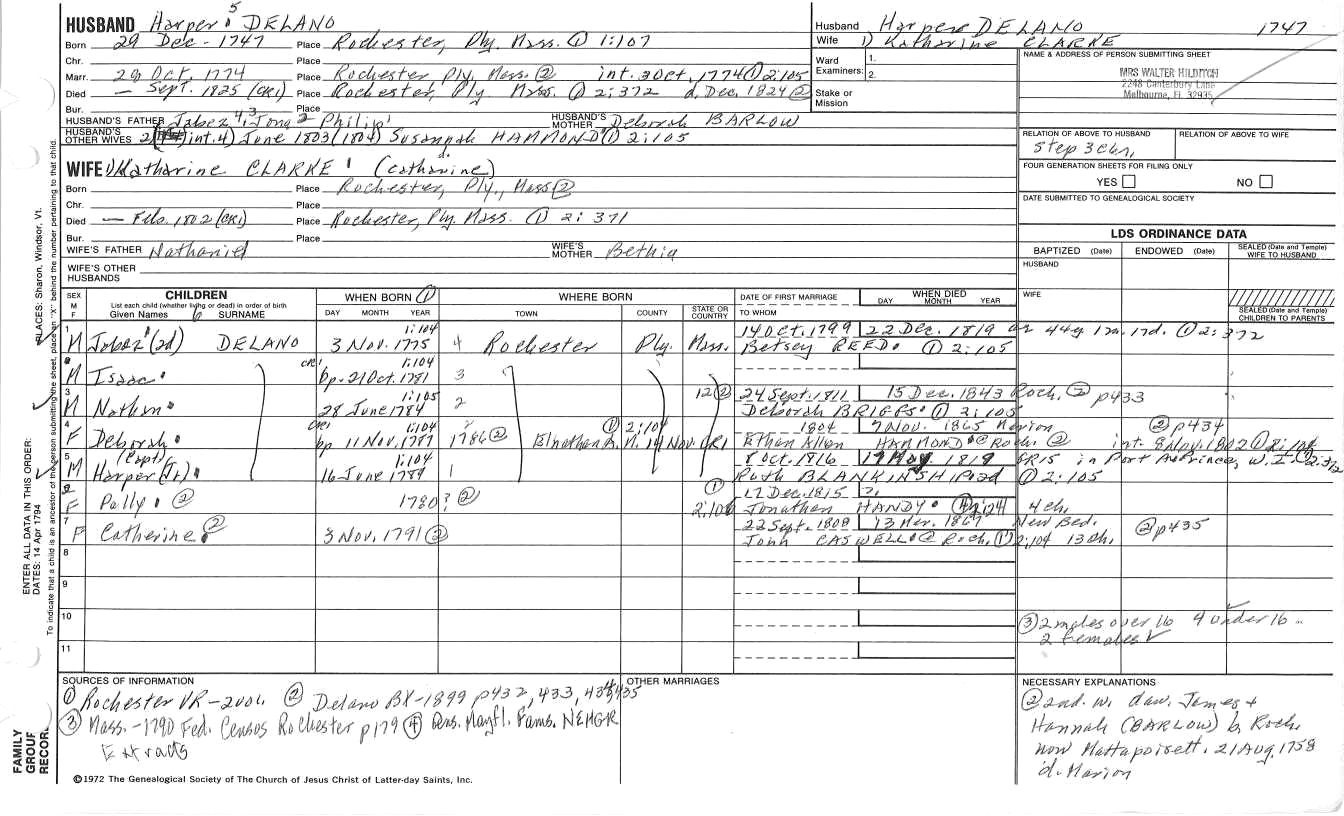 HUSBAND Harper 5 DELANO
Born 29 Dec - 1747 Place Rochester, Ply, Mass. ① 1:107
Chr. Place
Marr. 28 Oct. 1774 Place Rochester Ply, Mass. ② int. 3 Oct, 1774 ① 2:105
Died — Sept. 1825 (CR1) Place Rochester, Ply Mass. ① 2:372 d. Dec. 1824 ②
Bur. Place
HUSBAND'S FATHER Jabez 4, 3 Jona 2 Philip 1 HUSBAND'S MOTHER Deborah BARLOW
HUSBAND'S OTHER WIVES 2) int. 4) June 1803 (1804) Susannah HAMMOND ① 2:105
Husband Harper DELANO 1747
Wife 1) Katharine CLARKE
Ward Examiners: 1.
2.
Stake or Mission
NAME & ADDRESS OF PERSON SUBMITTING SHEET
MRS WALTER HILDITCH
2248 Canterbury Lane
Melbourne, Fl. 32935
RELATION OF ABOVE TO HUSBAND RELATION OF ABOVE TO WIFE
Step 3 chr.
FOUR GENERATION SHEETS FOR FILING ONLY
YES NO
DATE SUBMITTED TO GENEALOGICAL SOCIETY
WIFE 1) Katharine CLARKE (Catharine)
Born Place Rochester, Ply., Mass ②
Chr. Place
Died — Feb. 1802 (CR1) Place Rochester, Ply Mass. ① 2:371
Bur. Place
WIFE'S FATHER Nathaniel WIFE'S MOTHER Bethia
WIFE'S OTHER HUSBANDS
LDS ORDINANCE DATA
BAPTIZED (Date) ENDOWED (Date) SEALED (Date and Temple) WIFE TO HUSBAND
HUSBAND
WIFE
SEALED (Date and Temple) CHILDREN TO PARENTS
SEX M F CHILDREN List each child (whether living or dead) in order of birth Given Names 6 SURNAME
WHEN BORN ① DAY MONTH YEAR
WHERE BORN TOWN COUNTY STATE OR COUNTRY
DATE OF FIRST MARRIAGE TO WHOM
WHEN DIED DAY MONTH YEAR
1 M Jabez (2d) DELANO 1:104 3 Nov. 1775 4 Rochester Ply. Mass. 14 Oct. 1799 22 Dec. 1819 ae 44y 1m. 17d. ① 2:372
Betsey REED ① 2:105
M Isaac CR1 1:104 bp. 21 Oct. 1781 3
3 M Nathan 1:105 28 June 1784 2 12 ② 24 Sept. 1811 15 Dec. 1843 Roch. ② p433
Deborah BRIGGS ① 2:105
4 F Deborah CR1 1:104 bp 11 Nov. 1787 1786 ② ① 2:104 1804 7 Nov. 1865 Marion ② p434
Ethan Allen HAMMOND @ Roch. ② int. 8 Nov. 1802 ① 2:104
5 M (Capt.) Harper (Jr.) 1:104 16 June 1789 1 8 Oct. 1816 17 May 1819 GR15 in Port Au Prince, W. I. ① 2:372
Ruth BLANKINSHIP ① 2:105
F Polly ② 1780? ② ① 2:106 17 Dec. 1815
Jonathan HANDY ④ 2:124 4 ch.
7 F Catherine ② 3 Nov. 1791 ② 22 Sept. 1808 13 Mar. 1867 New Bed. ② p435
John CASWELL @ Roch. ① 2:104 13 ch.
8
9
10
11
③ 2 males over 16 4 under 16
2 females
SOURCES OF INFORMATION
① Rochester VR - 2 vol. ② Delano BK - 1899 p432, 433, 434, 435
③ Mass. - 1790 Fed. Census Rochester p179 ④ Gens. Mayfl. Fams. NEHGR
Extracts
OTHER MARRIAGES
NECESSARY EXPLANATIONS
② 2nd. w. dau. James +
Hannah (BARLOW) b. Roch.
now Mattapoisett. 21 Aug. 1758
d. Marion
©1972 The Genealogical Society of The Church of Jesus Christ of Latter-day Saints, Inc.
FAMILY GROUP RECOR
ENTER ALL DATA IN THIS ORDER:
DATES: 14 Apr 1794
PLACES: Sharon, Windsor, Vt.
To indicate that a child is an ancestor of the person submitting the sheet, place an "X" behind the number pertaining to that child.